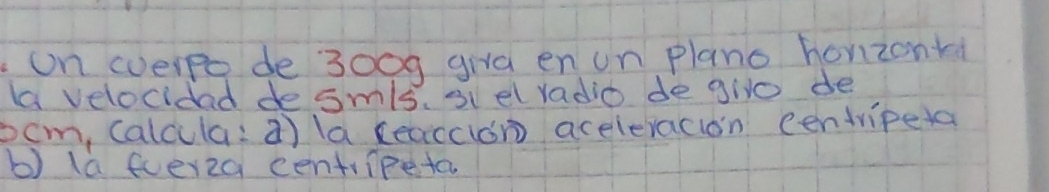 . Un cuerpo de 300g gira en un plano horizontal
la velocidad de 5m/s. si el radio de giro de
cm, calcula: a) la (reacción) aceleración centrípeta
b) la fuerza centrípeta.